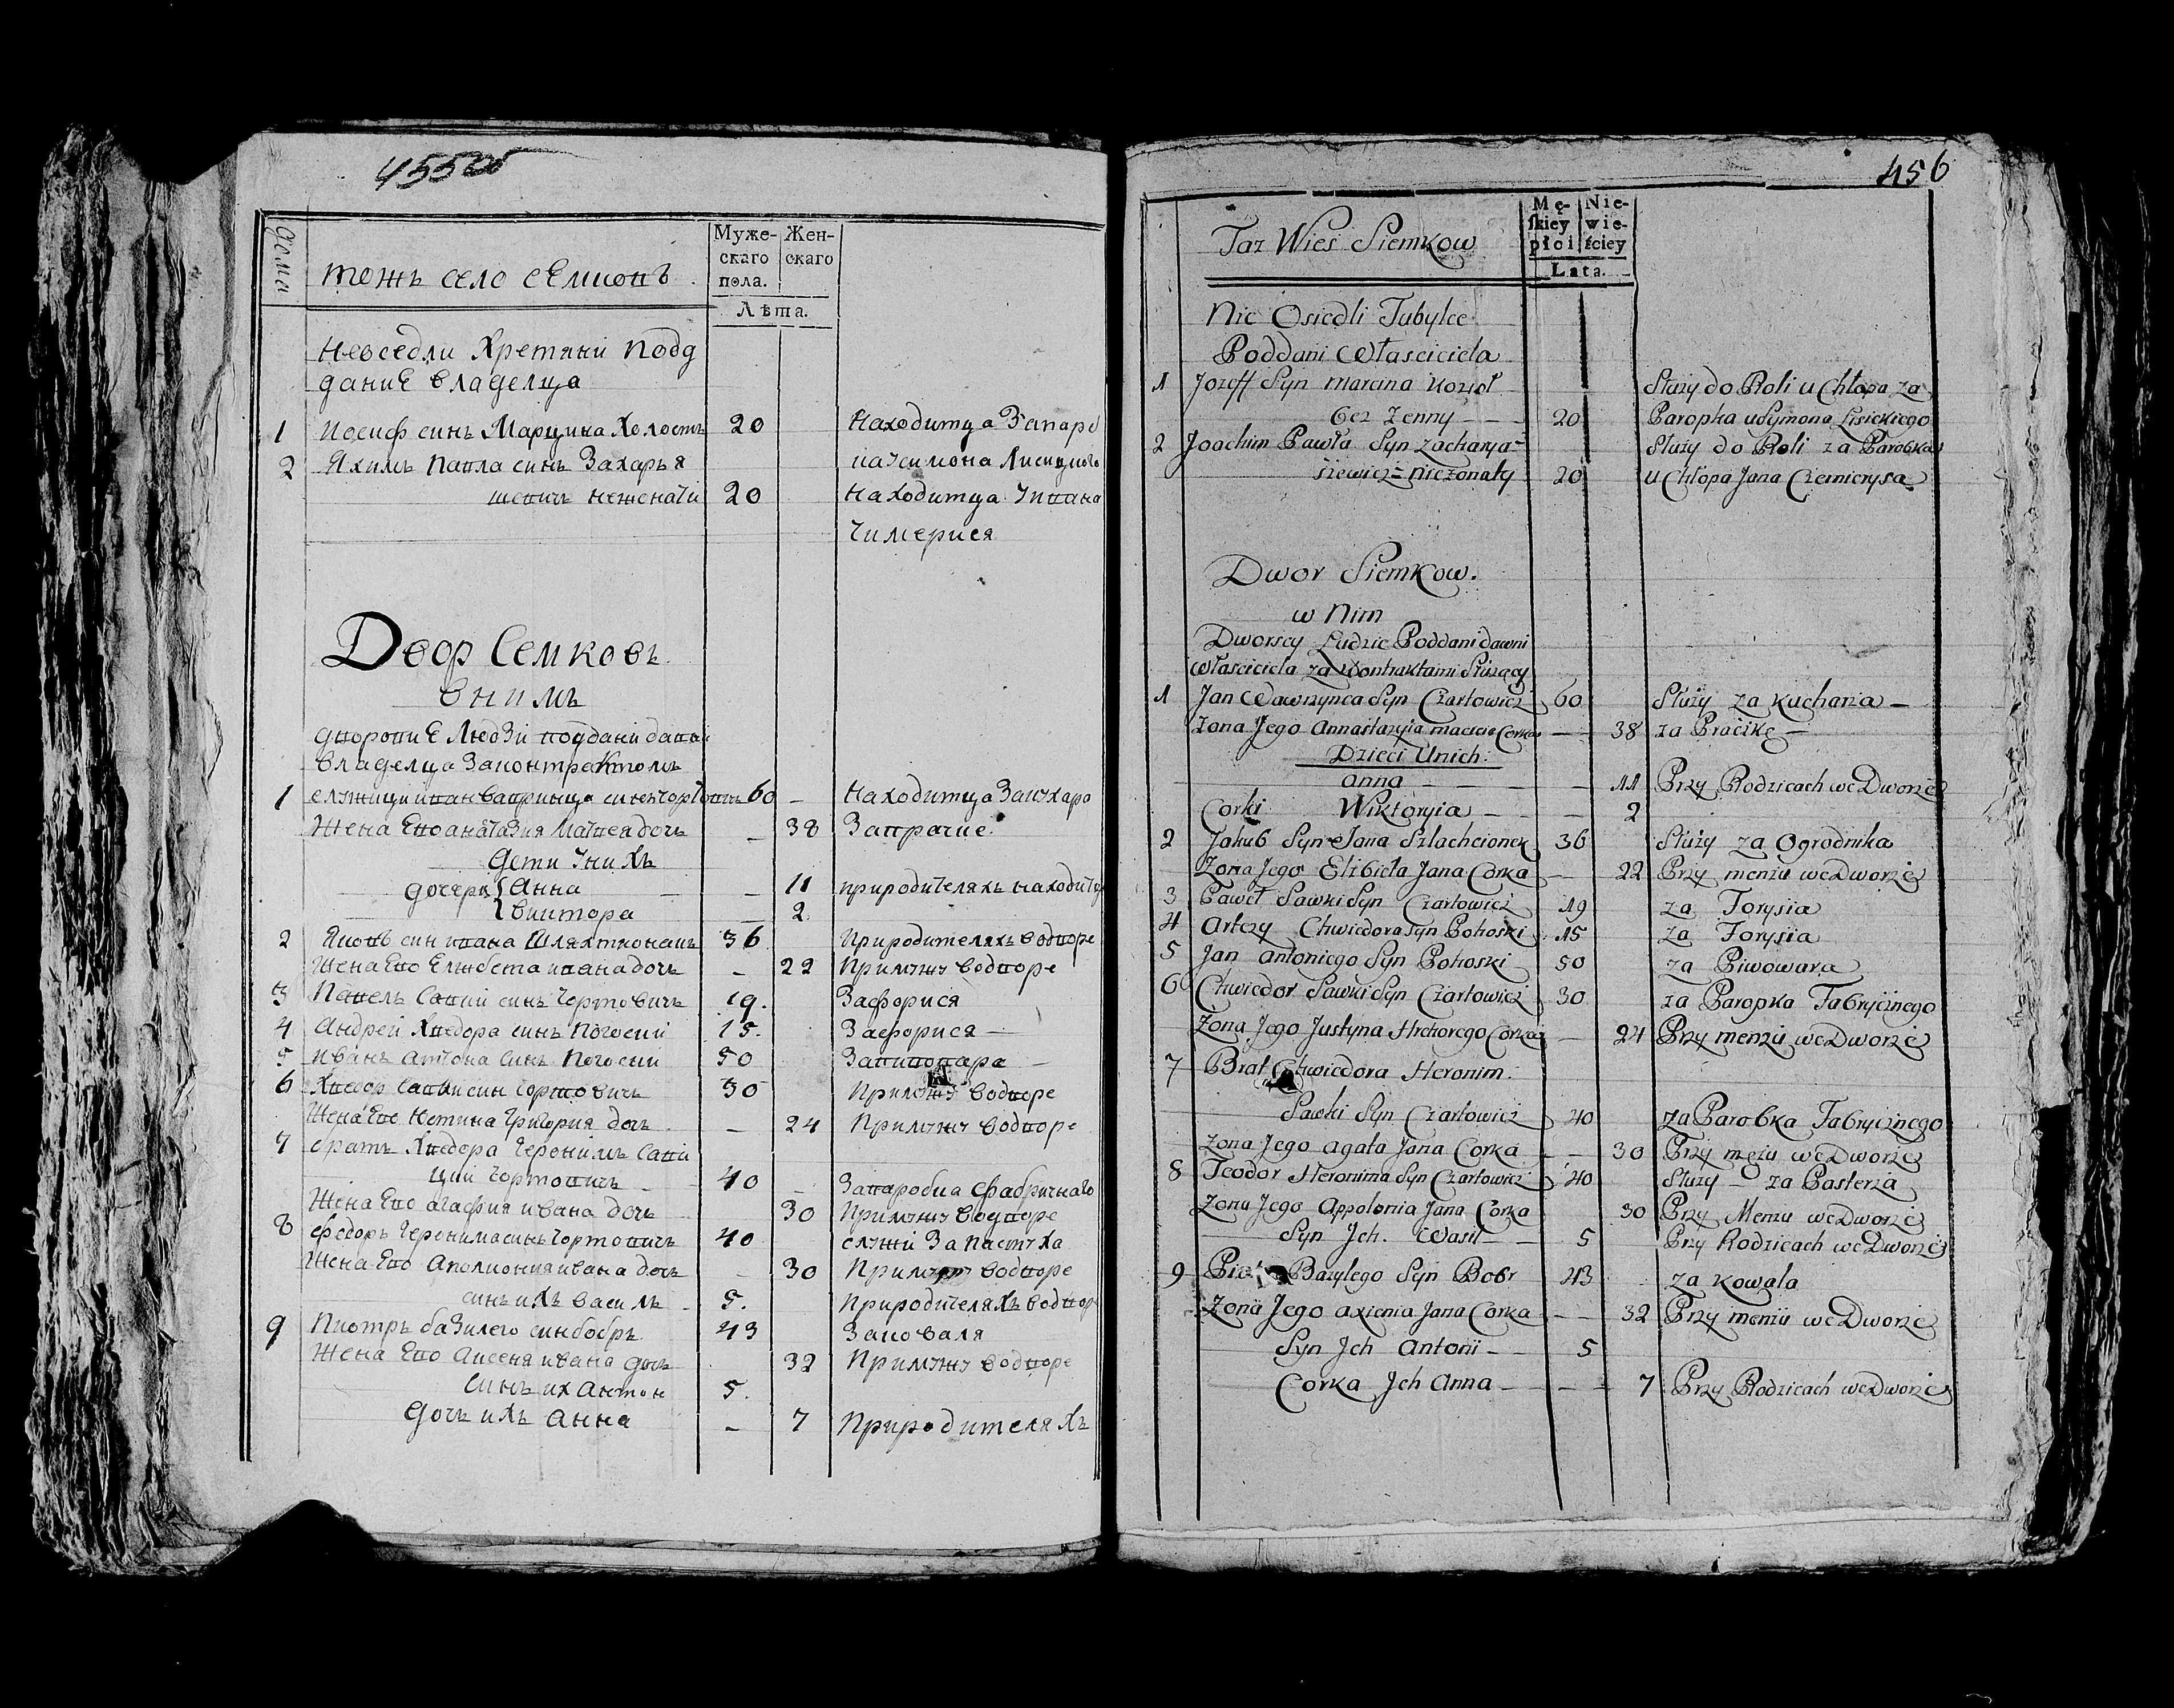 455об
дома
тожъ село сЕмковъ
Муже-
скаго
пола.
Жен-
скаго
Лѣта.
Невседли Хретяни подд
даниЕ владелца
1 Иосиф синъ Марцина Холостъ 20 Находитца Запаро
2 Яхимъ павла синъ Захарья
шевичъ неженати 20 Находитца Уивана
Чимериса
Двор Семковъ.
внимъ
дворовиЕ Людзи поддани давни
владелца Законтрактомъ
1 60 – Находитца Закухара
Жена Его анатазия Матвея дочъ – 38 Запрачке
дети Унихъ
дочери Анна – 11 природителяхъ находитца
виктора – 2
2 Яковъ син ивана Шляхтионакъ 36 Природителяхъ водворе
Жена Его Елжбета ивана дочъ – 22 Примужу водворе
3 Павелъ Савки синъ Чертовичъ 19. Заформса
4 Андрей Хведора синъ Погоски 15. Заформса –
5 иванъ антона синъ Погоски 50 Запивовара –
6 Хведор Савки син Чортовичъ 30 Примужу водворе
Жена Его Юстина Григория дочъ – 24 Примужу водворе
7 братъ Хведора Герони́мъ Савки
Чортовичъ – 40 – Запаробка фабричнаго
Жена Его агафия ивана дочъ 30 Примужу водворе
8 федоръ Геронима синъ Чортовичъ 40 служи За пастуха
Жена Его Аполиония ивана дочъ – 30 Примужу водворе
синъ ихъ василъ 5. Природителяхъ водворе
9 Пиотръ базилего син бобръ 43 Заковаля
Жена Его Аксеня ивана дочъ 32 Примужу водворе
Синъ их антон 5.
дочъ ихъ анна – 7 Природителяхъ
456
Taz Wies Siemkow
Mę-
skiey
płoi
Nie-
wie-
ściey
Lata.
Nie Osiedli Tubylce
Poddani Własciciela
1 Jozeff Syn Marcina Kozioł Słuzy do Roli u Chłopa za
bez Zenny – – 20 Paropka u Symona Lisickiego
2 Joachim Pawła Syn Zacharya= Słuzy do Roli za Parobka
siewicz = niezonaty 20 u Chłopa Jana Czemierysa
Dwor Siemkow.
w Nim
Dworscy Ludzie Poddani dawni
Własciciela za Kontraktami Słuzący
1 Jan Wawrzynca Syn Czartowicz 60 Słuzy za Kucharza –
Zona Jego Annastazyia Macieia Corka – 38 za Praczkę –
Dzieci Unich:
Anna – – – 11 Przy Rodzicach we Dworze
Corki Wiktoryia – – 2
2 Jakub Syn Jana Szlachcionek 36 Słuzy za Ogrodnika
Zona Jego Elzbieta Jana Corka – 22 Przy męzu we Dworze
3 Paweł Sawki Syn Czartowicz 19 za Forysia
4 Artezy Chwiedora Syn Pohoski 15 za Forysia
5 Jan Antoniego Syn Pohoski 50 za Piwowara
6 Chwiedor Sawki Syn Czartowicz 30 za Paropka Fabrycznego
Zona Jego Justyna Hrehorego Corka – 24 Przy męzu we Dworze
7 Brat Chwiedora Heronim.
Sawki Syn Czartowicz 40 za Parobka Fabrycznego
Zona Jego Agata Jana Corka – – 30 Przy męzu we Dworze
8 Teodor Heronima Syn Czartowicz 40 Słuzy – za Pasterza
Zona Jego Appolonia Jana Corka 30 Przy Męzu we Dworze
Syn Jch. Wasil – 5 Przy Rodzicach we Dworze
9 Bazylego Syn Bobr 43 za Kowala
Zona Jego Axienia Jana Corka – – 32 Przy męzu we Dworze
Syn Jch Antoni – – 5
Corka Jch Anna – – – 7 Przy Rodzicach we Dworze